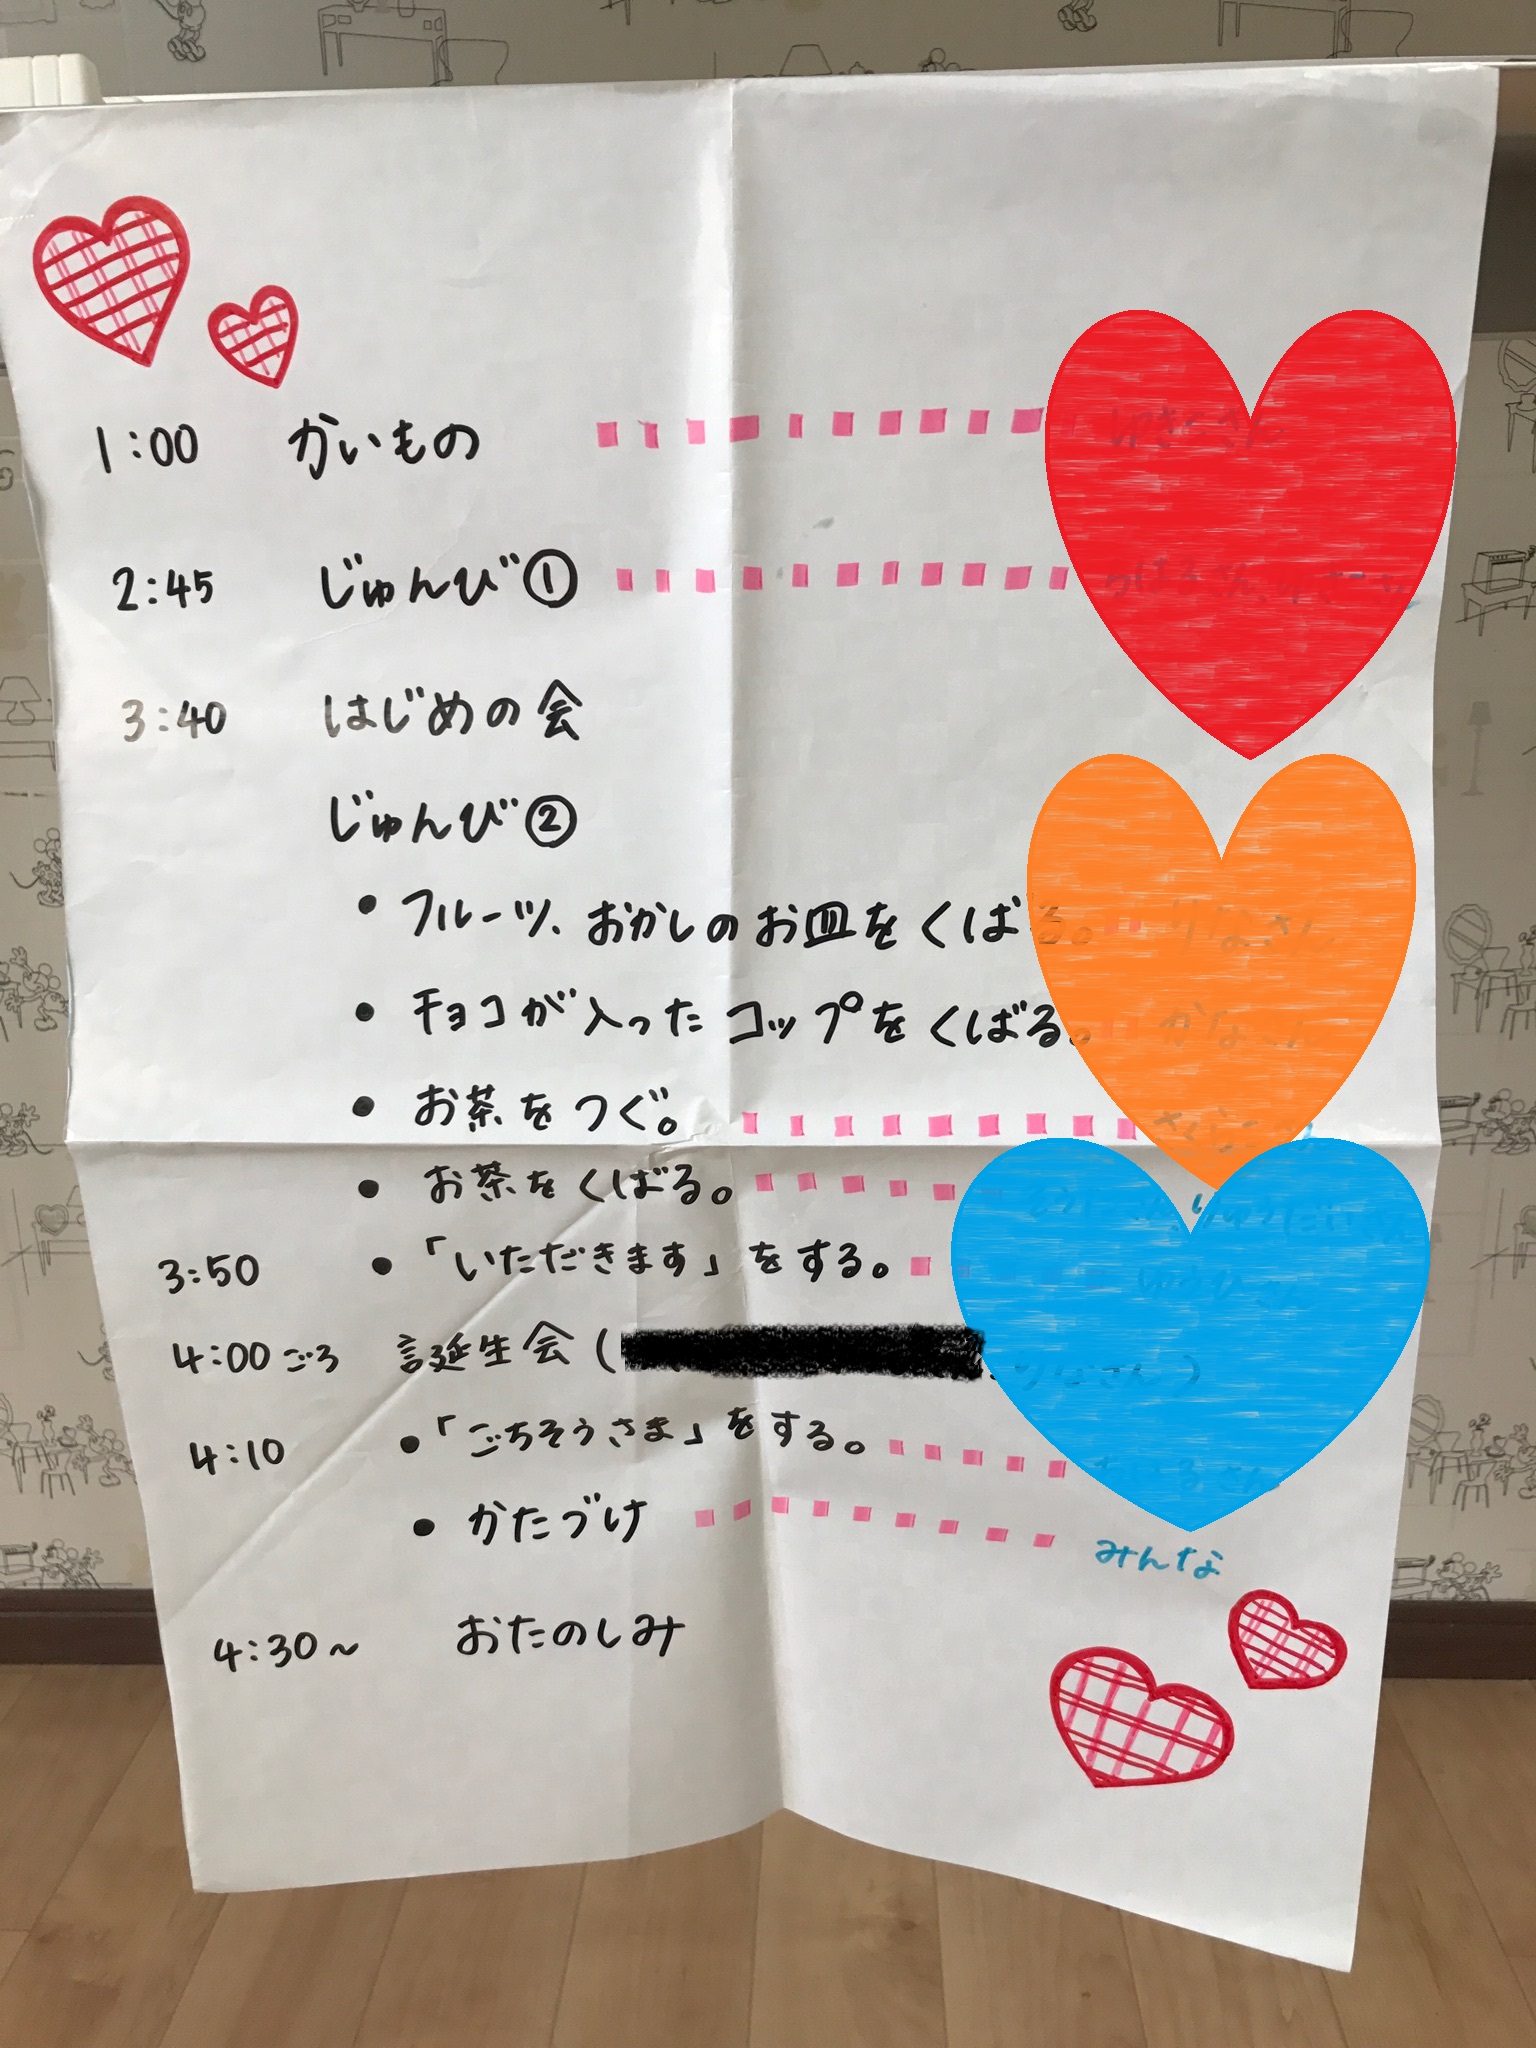 1:00 かいもの
2:45 じゅんび①
3:40 はじめの会
じゅんび②
• フルーツ、おかしのお皿をくばる。
• チョコが入ったコップをくばる。
• お茶をつぐ。
• お茶をくばる。
3:50 • 「いただきます」をする。
4:00ごろ 誕生会(
4:10 • 「ごちそうさま」をする。
• かたづけ みんな
4:30~ おたのしみ